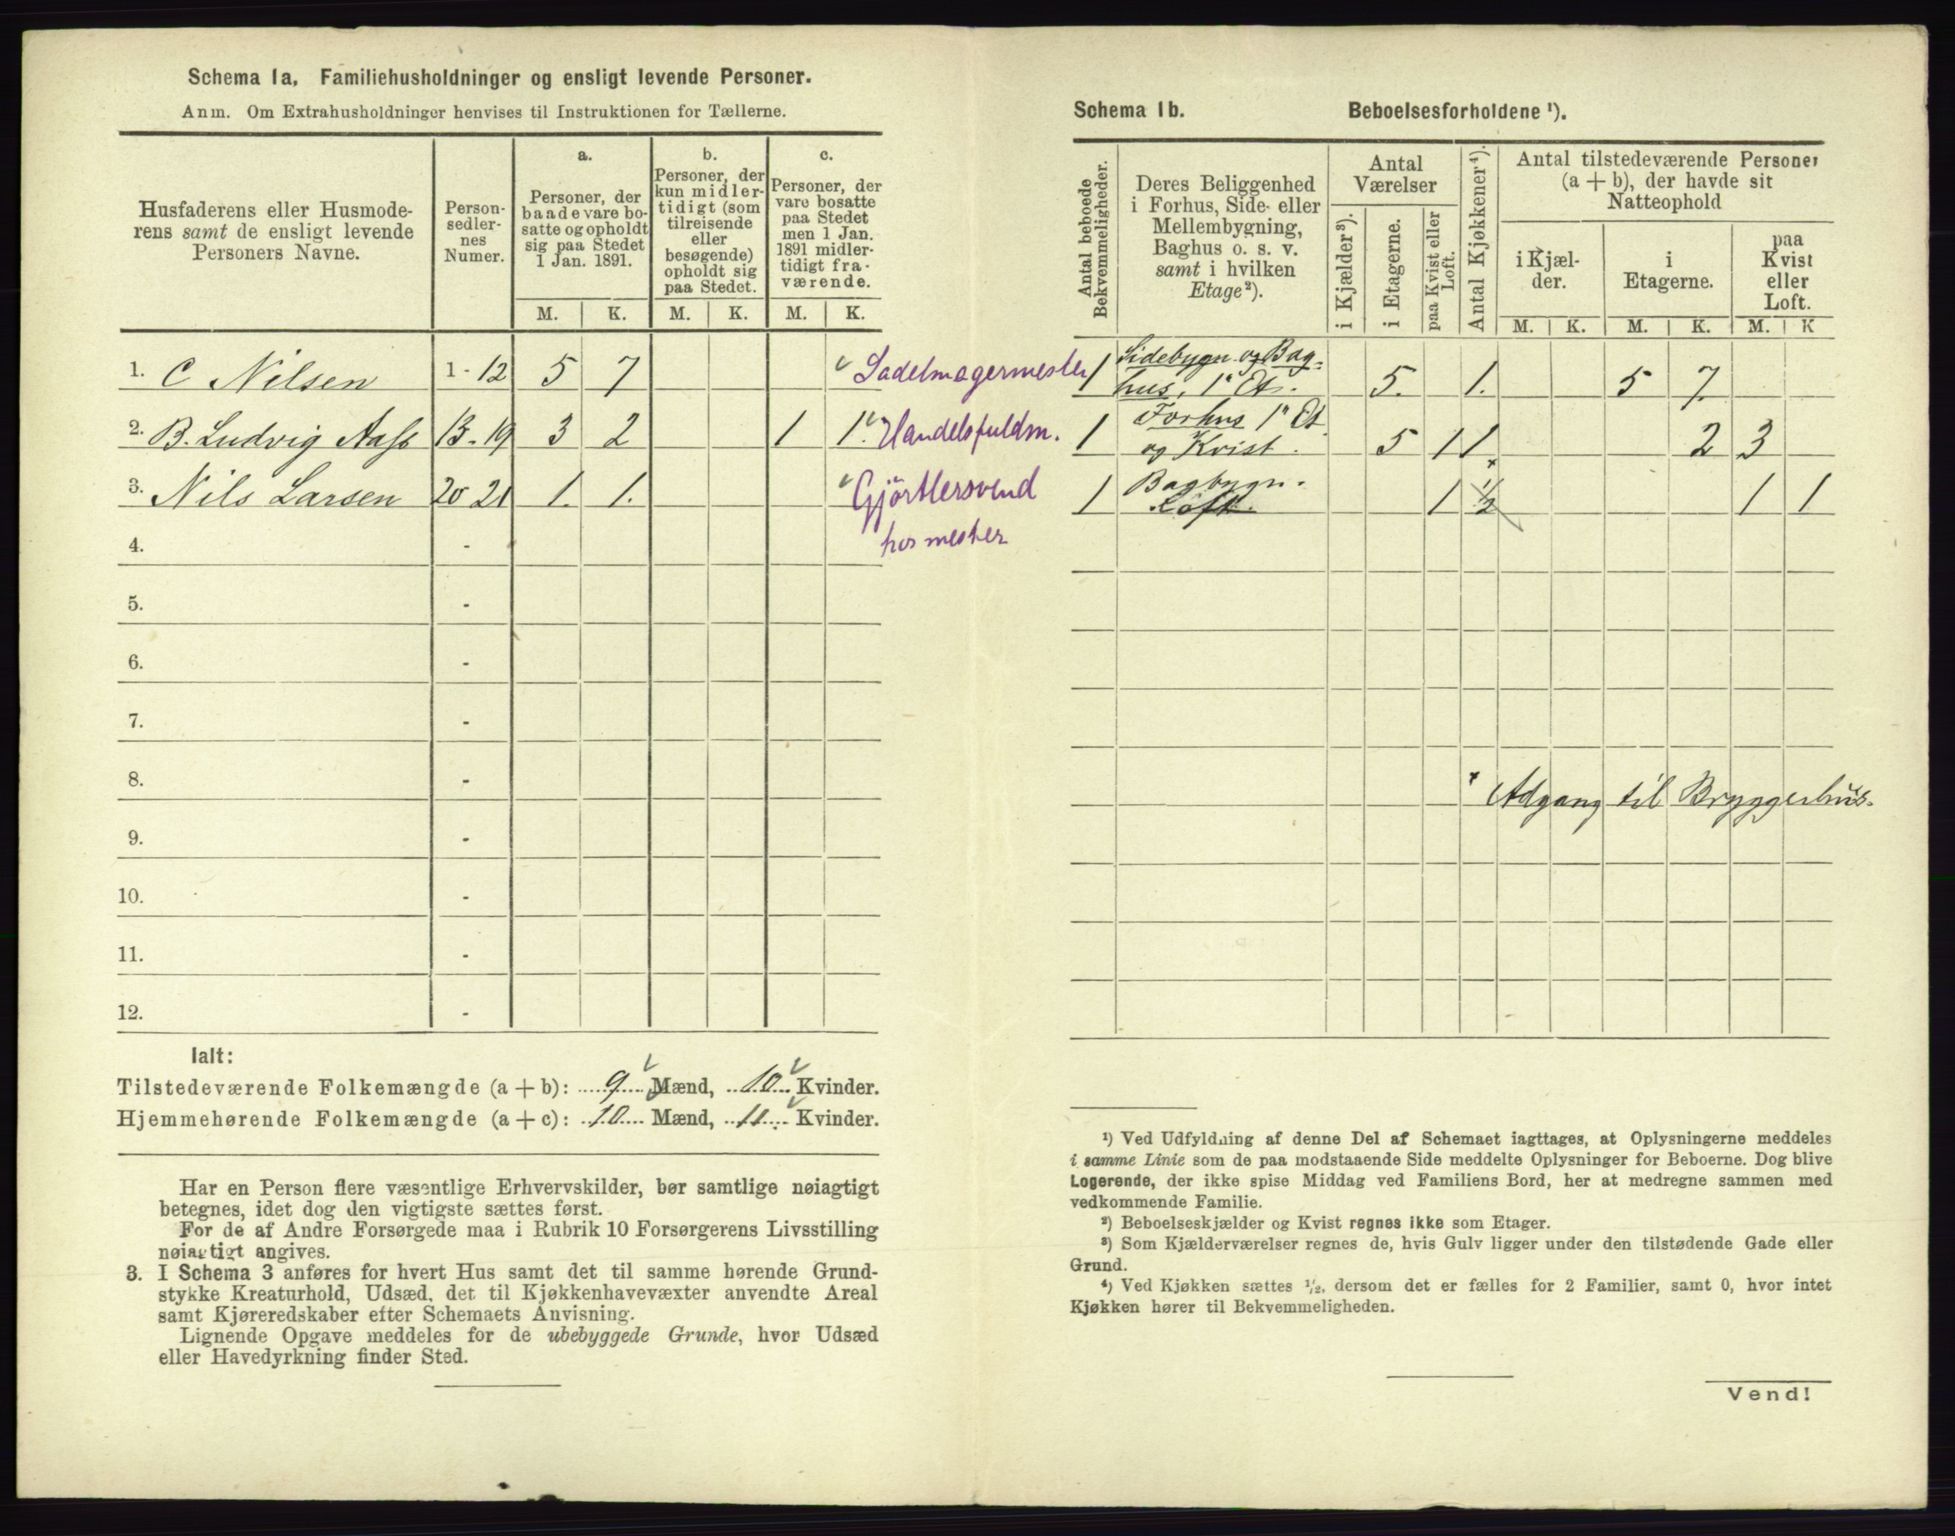 Schema 1a. Familiehusholdninger og ensligt levende Personer.
Anm. Om Extrahusholdninger henvises til Instruktionen for Tællerne.
Husfaderens eller Husmode-
rens samt de ensligt levende
Personers Navne.
Person-
sedler-
nes
Numer.
a.
Personer, der
baade vare bo-
satte og opholdt
sig paa Stedet
1 Jan. 1891.
b.
Personer, der
kun midler-
tidigt (som
tilreisende
eller
besøgende)
opholdt sig
paa Stedet.
c.
Personer, der
vare bosatte
paa Stedet
men 1 Jan.
1891 midler-
tidigt fra-
værende.
M. K. M. K. M. K.
1. C Nilsen 1 - 12 5 7 Sadelmagermester
2. B. Ludvig Aass 13 - 19 3 2 1 1. Handelsfuldm.
3. Nils Larsen 20 21 1. 1. Gjörtlersvend
hos mester
4. -
5. -
6. -
7. -
8. -
9. -
10. -
11. -
12. -
Ialt:
Tilstedeværende Folkemængde (a + b): 9 Mænd, 10 Kvinder.
Hjemmehørende Folkemængde (a + c): 10 Mænd, 11 Kvinder.
Har en Person flere væsentlige Erhvervskilder, bør samtlige nøiagtigt
betegnes, idet dog den vigtigste sættes først.
For de af Andre Forsørgede maa i Rubrik 10 Forsørgerens Livsstilling
nøiagtigt angives.
3. I Schema 3 anføres for hvert Hus samt det til samme hørende Grund-
stykke Kreaturhold, Udsæd, det til Kjøkkenhavevæxter anvendte Areal
samt Kjøreredskaber efter Schemaets Anvisning.
Lignende Opgave meddeles for de ubebyggede Grunde, hvor Udsæd
eller Havedyrkning finder Sted.
Schema 1b. Beboelsesforholdene ¹).
Antal beboede
Bekvemmeligheder.
Deres Beliggenhed
i Forhus, Side- eller
Mellembygning,
Baghus o. s. v.
samt i hvilken
Etage²).
Antal
Værelser
i Kjælder³).
i Etagerne.
paa Kvist eller
Loft.
Antal Kjøkkener⁴).
Antal tilstedeværende Personer
(a + b), der havde sit
Natteophold
i Kjæl-
der.
i
Etagerne.
paa
Kvist
eller
Loft.
M. K. M. K. M. K
1 Sidebygn. og Bag-
hus, 1ª Et. 5. 1. 5 7.
1 Forhus 1ª Et
og Kvist. 5 1 1 2 3
1 Bagbygn.
Loft. 1 ½ 1 1
× Adgang til Bryggerhus.
¹) Ved Udfyldning af denne Del af Schemaet iagttages, at Oplysningerne meddeles
i samme Linie som de paa modstaaende Side meddelte Oplysninger for Beboerne. Dog blive
Logerende, der ikke spise Middag ved Familiens Bord, her at medregne sammen med
vedkommende Familie.
²) Beboelseskjælder og Kvist regnes ikke som Etager.
³) Som Kjælderværelser regnes de, hvis Gulv ligger under den tilstødende Gade eller
Grund.
⁴) Ved Kjøkken sættes ½, dersom det er fælles for 2 Familier, samt 0, hvor intet
Kjøkken hører til Bekvemmeligheden.
Vend!